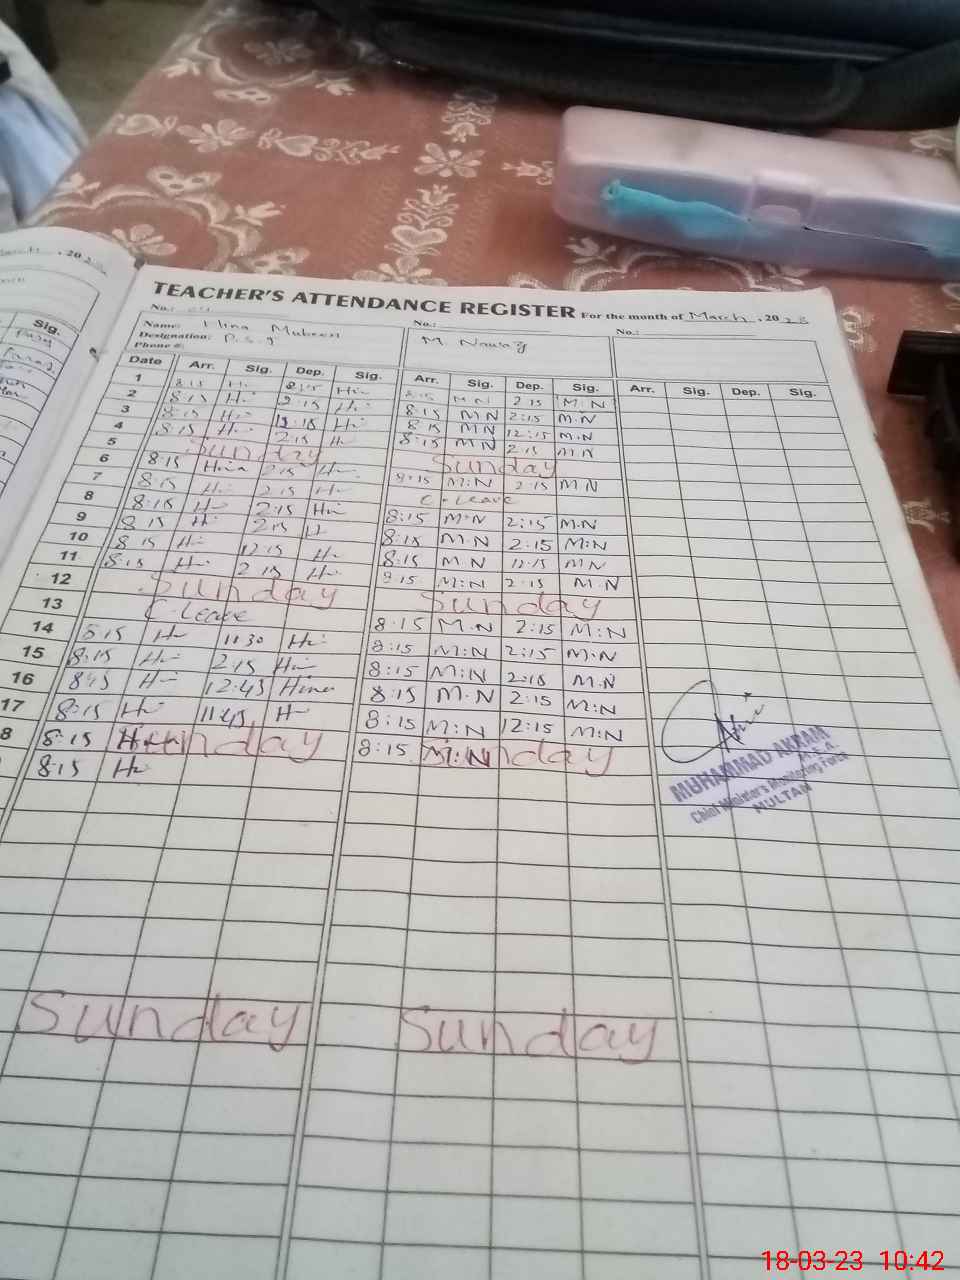 TEACHER'S ATTENDANCE REGISTER For the month of March, 2023
No.: No.: No.:
Name: Hina Mubeen M. Nawaz
Designation: P.S.T
Phone #:
Date Arr. Sig. Dep. Sig. Arr. Sig. Dep. Sig. Arr. Sig. Dep. Sig.
1 8:15 Hi 2:15 Hin 8:15 M N 2:15 M:N
2 8:15 Hi 2:15 Hi 8:15 M N 2:15 M.N
3 8:15 Hi 12:15 Hi 8:15 MN 12:15 M.N
4 8:15 Hi 2:15 H 8:15 MN 2:15 M.N
5 Sunday Sunday
6 8:15 Hina 2:15 Hi 8:15 M:N 2:15 M N
7 8:15 Hi 2:15 Hi C-leave
8 8:15 Hi 2:15 Hin 8:15 M.N 2:15 M.N
9 8:15 Hi 2:15 H 8:15 M.N 2:15 M:N
10 8:15 Hi 12:15 Hi 8:15 M.N 12:15 MN
11 8:15 Hi 2:15 Hi 8:15 M:N 2:15 M.N
12 Sunday Sunday
13 C-leave 8:15 M.N 2:15 M:N
14 8:15 Hi 11:30 Hi 8:15 M:N 2:15 M.N
15 8:15 Hi 2:15 Hin 8:15 M:N 2:15 M.N
16 8:15 Hi 12:45 Hina 8:15 M.N 2:15 M:N
17 8:15 Hi 11:45 Hi 8:15 M:N 12:15 M:N
8 8:15 Sunday 8:15 M:N Sunday
8:15 Hi
MUHAMMAD AKRAM
M.E.A.
Chief Minister's Monitoring Force
MULTAN
Sunday Sunday
March, 20
Sig.
18-03-23 10:42